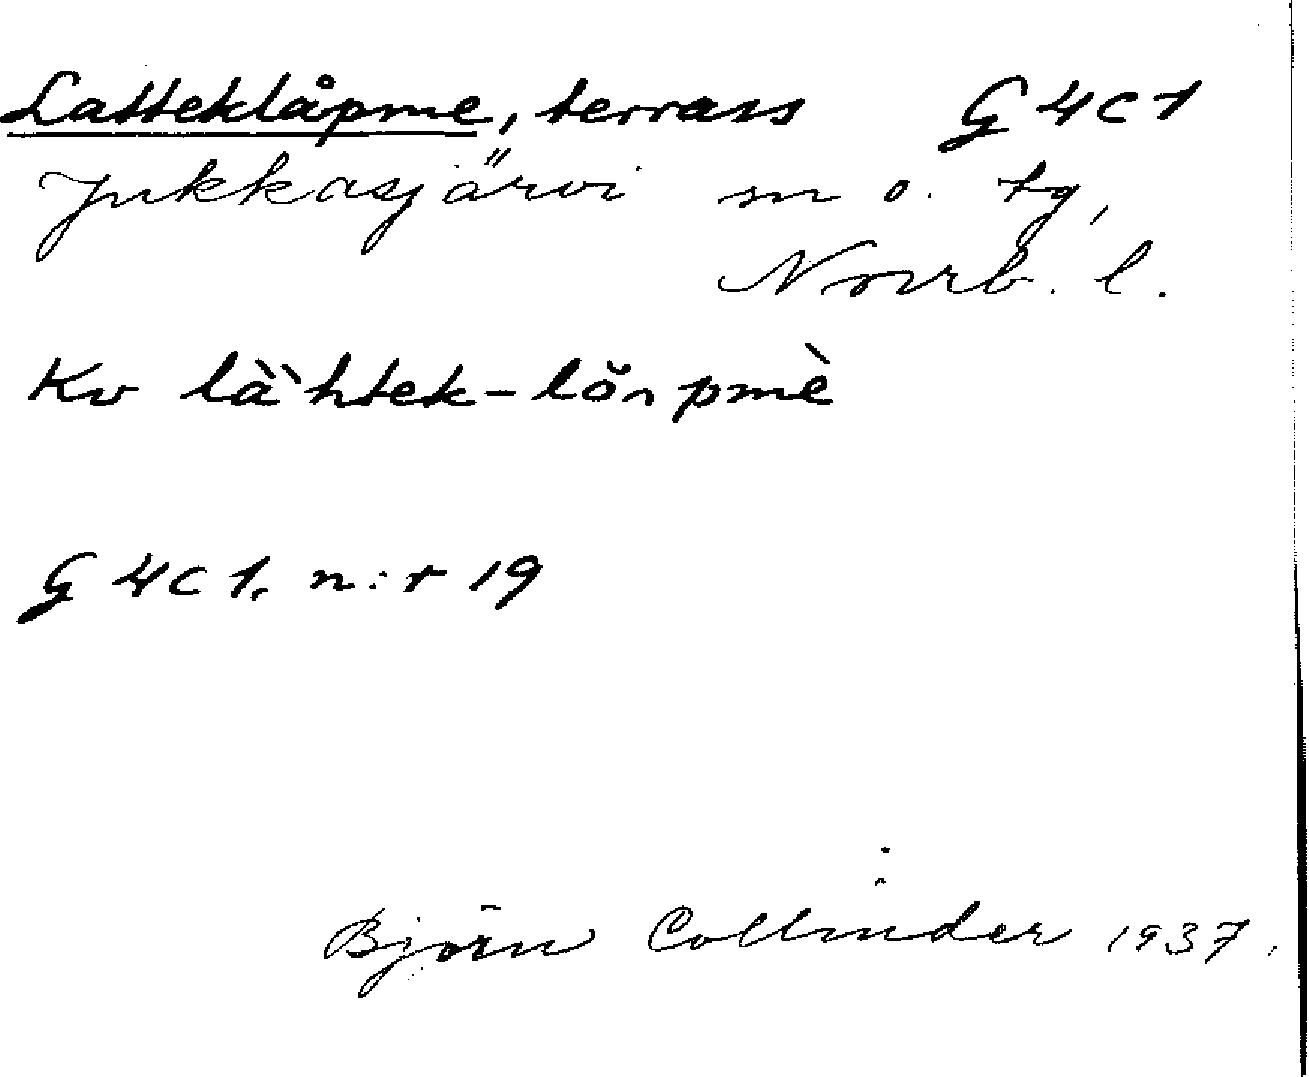 Latteklåpme, terrass G 4 c 1
Jukkasjärvi sn o. tg,
Norrb. l.
Kv là`htek-lŏ˄pmè
G 4 c 1. n:r 19
Björn Collinder 1937.